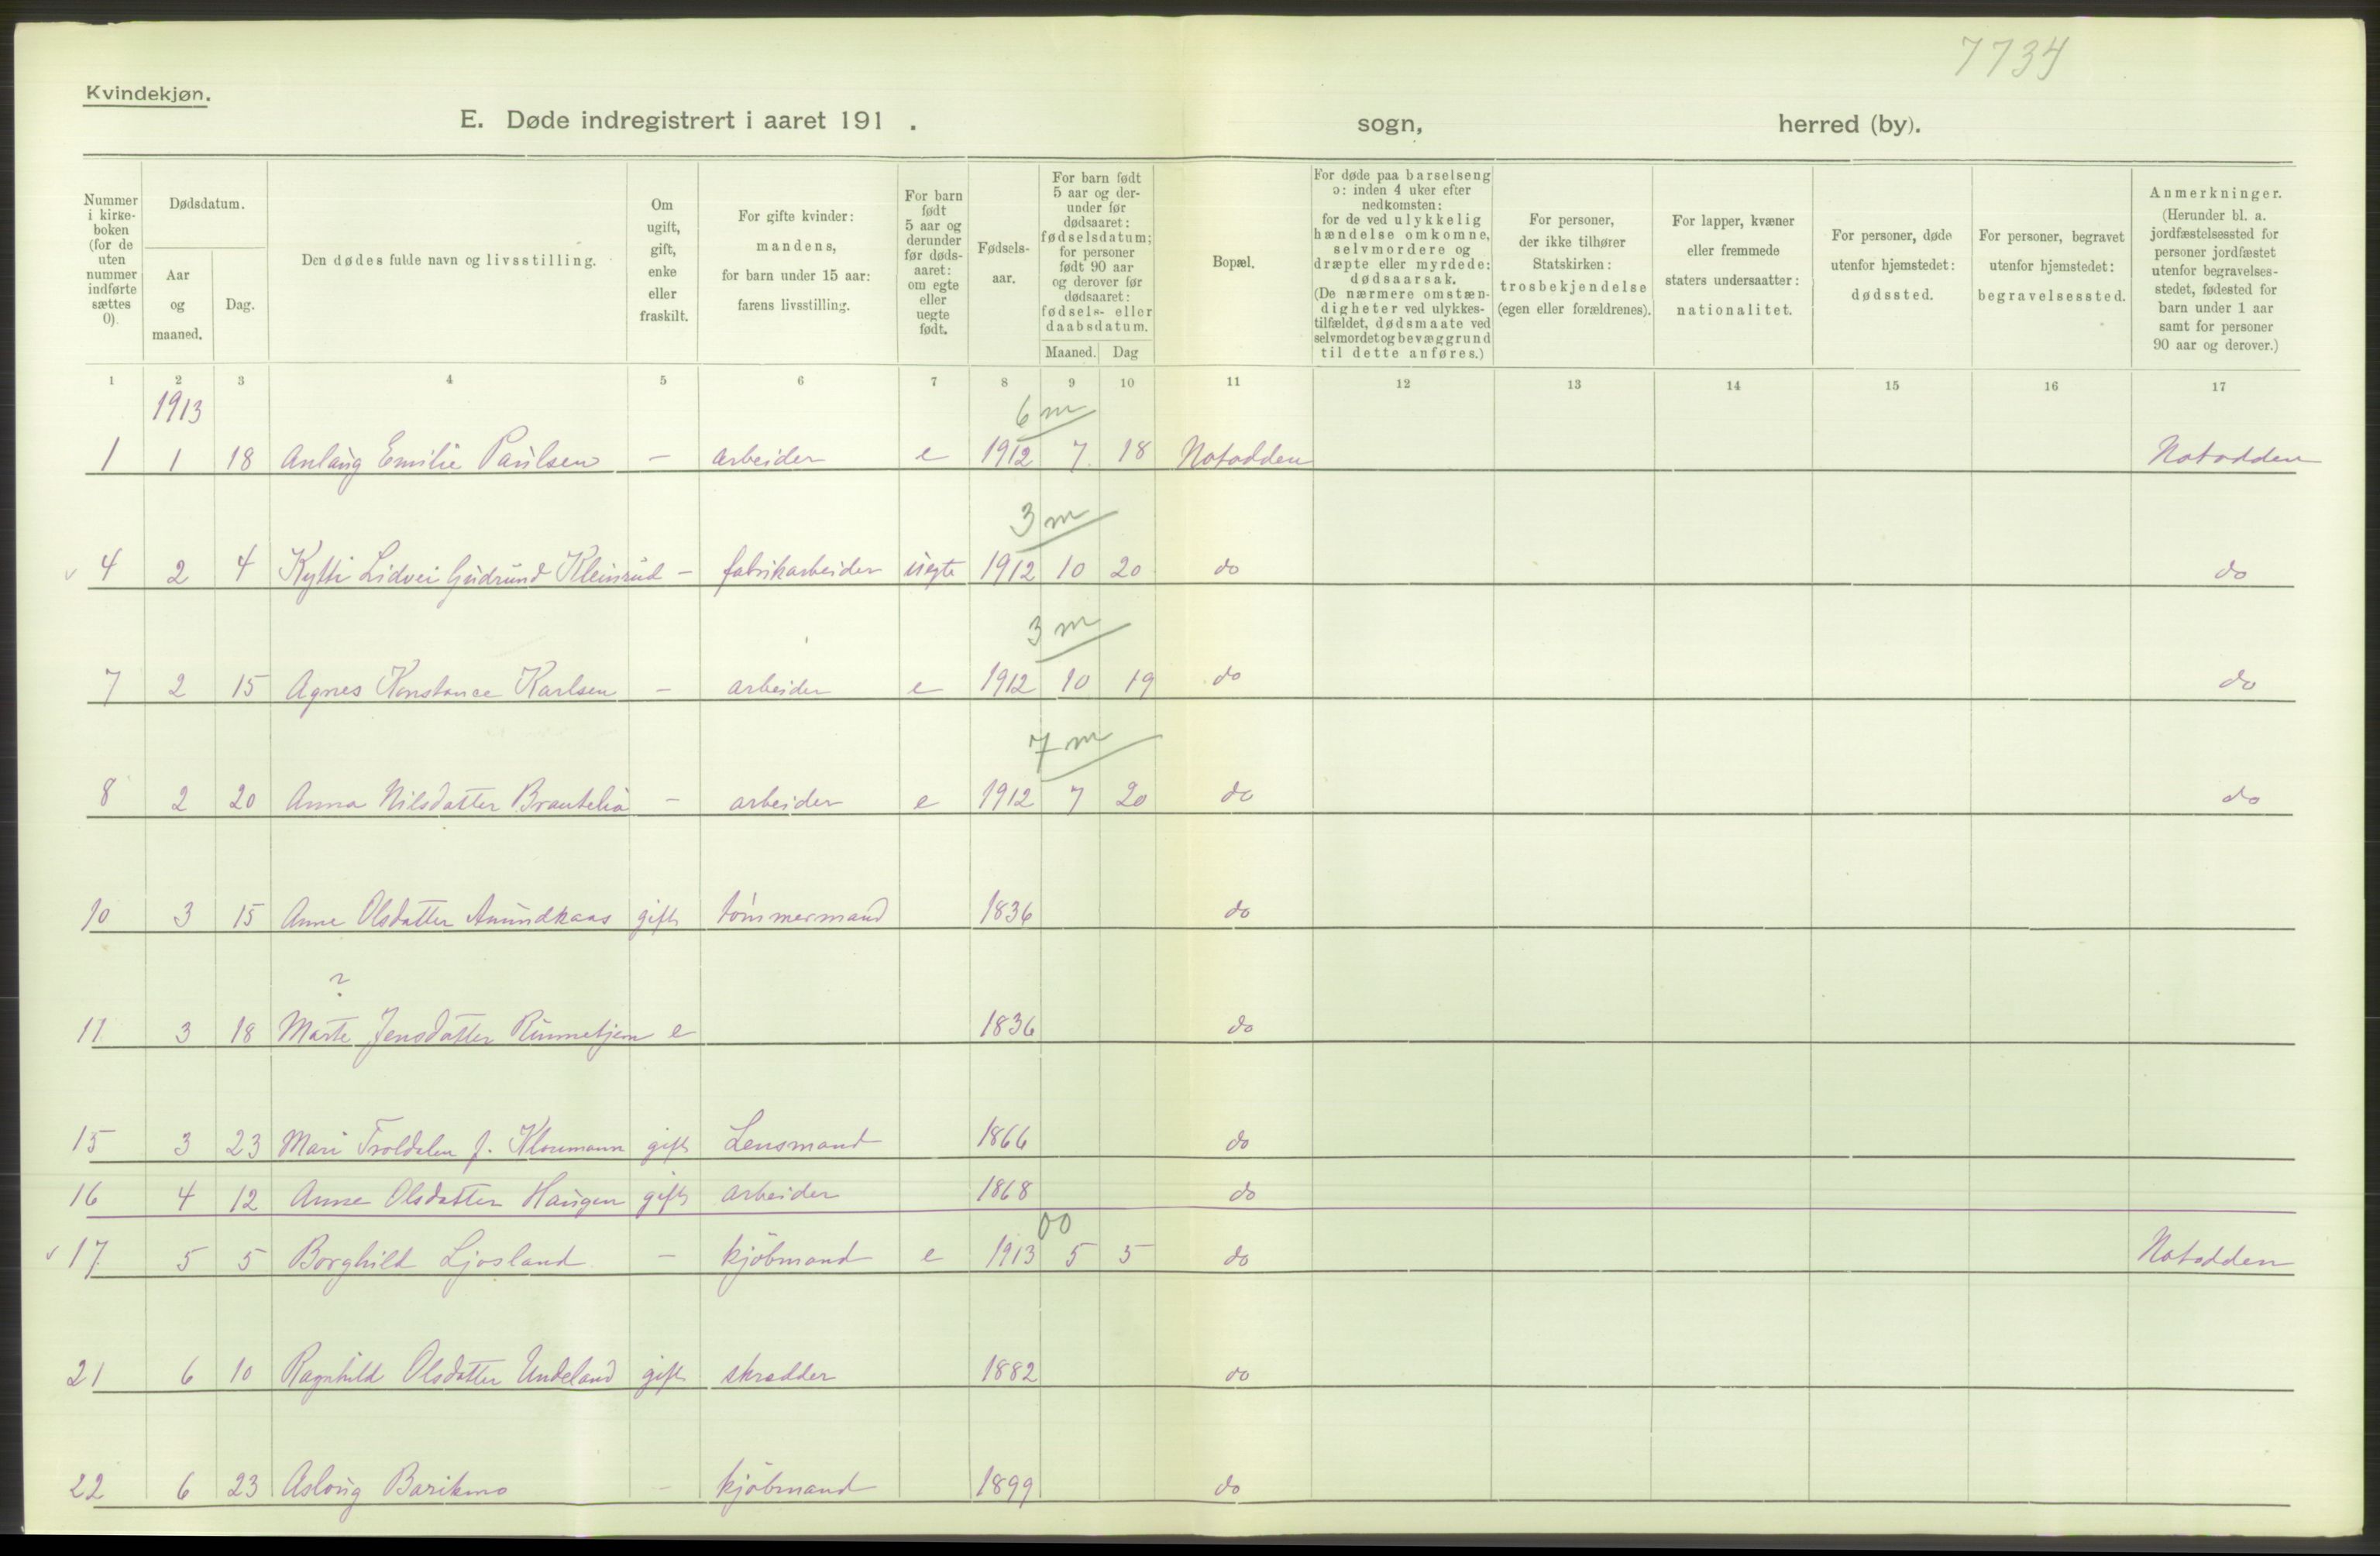 7734
Kvindekjøn.
E. Døde indregistrert i aaret 191 . sogn, herred (by).
Nummer i kirke-boken (for de uten nummer indførte sættes 0).
Dødsdatum.
Aar og maaned.
Dag.
Den dødes fulde navn og livsstilling.
Om ugift, gift, enke eller fraskilt.
For gifte kvinder: mandens, for barn under 15 aar: farens livsstilling.
For barn født 5 aar og derunder før døds-aaret: om egte eller uegte født.
Fødsels-aar.
For barn født 5 aar og der-under før dødsaaret: fødselsdatum; for personer født 90 aar og derover før dødsaaret: fødsels- eller daabsdatum.
Maaned. Dag
Bopæl.
For døde paa barselseng ɔ: inden 4 uker efter nedkomsten: for de ved ulykkelig hændelse omkomne, selvmordere og dræpte eller myrdede: dødsaarsak. (De nærmere omstæn-digheter ved ulykkes-tilfældet, dødsmaate ved selvmordet og bevæggrund til dette anføres.)
For personer, der ikke tilhører Statskirken: trosbekjendelse (egen eller forældrenes).
For lapper, kvæner eller fremmede staters undersaatter: nationalitet.
For personer, døde utenfor hjemstedet: dødssted.
For personer, begravet utenfor hjemstedet: begravelsessted.
Anmerkninger. (Herunder bl. a. jordfæstelsessted for personer jordfæstet utenfor begravelses-stedet, fødested for barn under 1 aar samt for personer 90 aar og derover.)
1 2 3 4 5 6 7 8 9 10 11 12 13 14 15 16 17
1913
6 m
1 1 18 Anlaug Emilie Paulsen – arbeider e 1912 7 18 Notodden Notodden
3 m
v 4 2 4 Kytti Lidvei Gudrund Kleivrud – fabrikarbeider uegte 1912 10 20 do do
3 m
7 2 15 Agnes Konstance Karlsen – arbeider e 1912 10 19 do do
7 m
8 2 20 Anna Nilsdatter Brautelia – arbeider e 1912 7 20 do do
10 3 15 Anne Olsdatter Amundkaas gift tømmermand 1836 do
?
11 3 18 Marte Jensdatter Rinnetjern e 1836 do
15 3 23 Mari Troldalen f. Kloumann gift Lensmand 1866 do
16 4 12 Anne Olsdatter Haugen gift arbeider 1868 do
00
v 17. 5 5 Borghild Ljosland – kjöbmand e 1913 5 5 do Notodden
21 6 10 Ragnhild Olsdatter Undeland gift skrædder 1882 do
22 6 23 Aslaug Barikmo – kjöbmand 1899 do